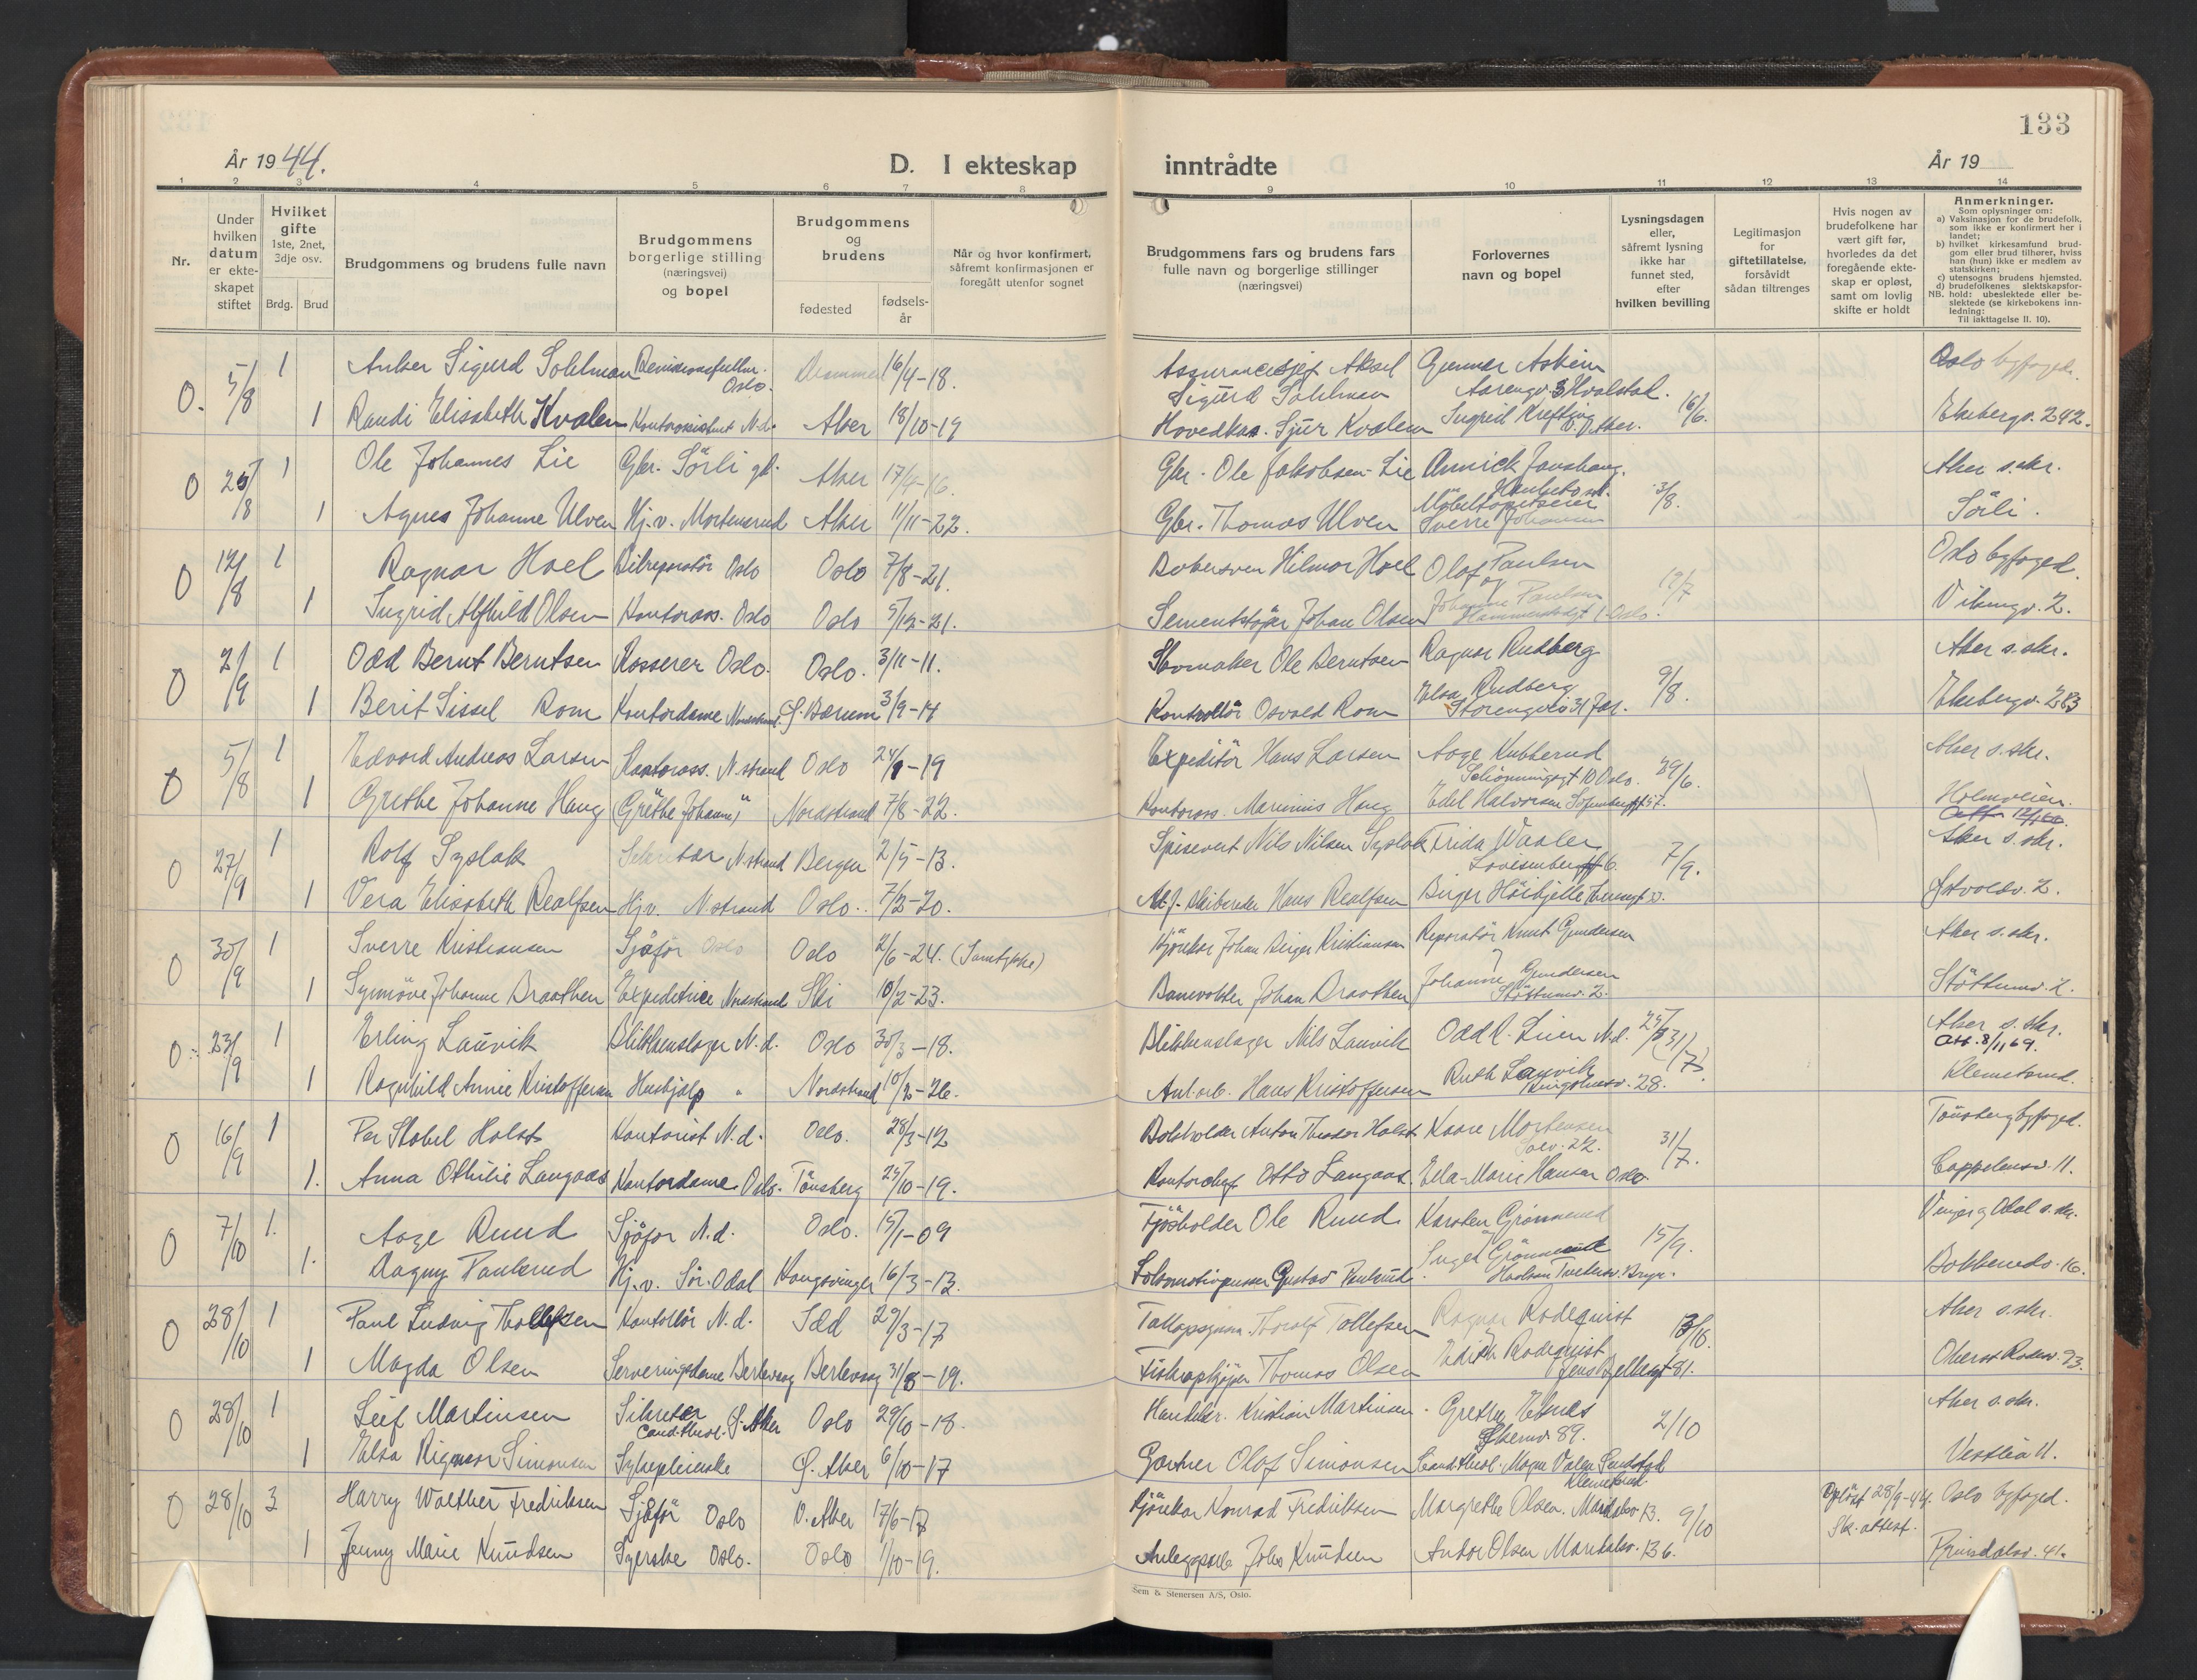 133
År 1944.
D. I ekteskap inntrådte
År 19
1 2 3 4 5 6 7 8 9 10 11 12 13 14
Nr.
Under hvilken datum er ekteskapet stiftet
Hvilket gifte 1ste, 2net, 3dje osv.
Brdg. Brud
Brudgommens og brudens fulle navn
Brudgommens borgerlige stilling (næringsvei) og bopel
Brudgommens og brudens
fødested
fødselsår
Når og hvor konfirmert, såfremt konfirmasjonen er foregått utenfor sognet
Brudgommens fars og brudens fars fulle navn og borgerlige stillinger (næringsvei)
Forlovernes navn og bopel
Lysningsdagen eller, såfremt lysning ikke har funnet sted, efter hvilken bevilling
Legitimasjon for giftetillatelse, forsåvidt sådan tiltrenges
Hvis nogen av brudefolkene har vært gift før, hvorledes da det foregående ekteskap er opløst, samt om lovlig skifte er holdt
Anmerkninger.
Som oplysninger om:
a) Vaksinasjon for de brudefolk, som ikke er konfirmert her i landet;
b) hvilket kirkesamfund brudgom eller brud tilhører, hviss han (hun) ikke er medlem av statskirken;
c) utensogns brudens hjemsted.
d) brudefolkenes slektskapsforhold: ubeslektede eller beslektede (se kirkebokens innledning:
NB.
Til iakttagelse II. 10).
O. 5/8 1 Anker Sigurd Sohlman Revisionsfullm. Oslo. Drammen 16/4-18. Assurancesjef Aksel Sigurd Sohlman Gunnar Askeim Hvalstad. 16/6. Oslo byfoged.
1 Randi Elisabeth Kvalen Kontorassistent N.d. Aker 18/10-19 Sjur Kvalen Ingrid Krefting V. Aker. Ekebergv. 242.
O 25/8 1 Ole Johannes Lie Gbr. Sörli gd. Aker 17/4-16. Gbr. Ole Jakobsen Lie Annick 3/8. Aker s.skr.
1 Agnes Johanne Ulven Hj.v. Mortensrud Aker 11/11-22. Gbr. Thomas Ulven Möbeltapetserer Sverre Johansen Sörli.
O 12/8 1 Ragnar Hoel Bilreparatör Oslo Oslo 7/8-21. Hilmar Hoel Olaf Paulsen og 12/7 Oslo byfoged.
1 Ingrid Alfhild Olsen Kontorass. Oslo Oslo 5/12-21. Sementstöper Johan Olsen Johanne Paulsen 1 Oslo. Vikingv. 2.
O 2/9 1 Odd Bernt Berntsen Kasserer Oslo. Oslo. 3/11-11. Skomaker Ole Berntsen Ragnar Rudberg 9/8. Aker s.skr.
1 Berit Sissel Rom Kontordame Nordstrand. Ö. Bærum 3/9-14 Kontrollör Osvald Rom Elsa Rudberg Storengvei 31 Jar. Ekebergv. 283
O 5/8 1 Edvard Andreas Larsen Kontorass. N.strand Oslo 24/9-19 Expeditör Hans Larsen Aage Kubberud Schönningsgt 10 Oslo. 29/6. Aker s.skr.
1 Grethe Johanne Haug (Grethe Johanne) Nordstrand 7/8-22. Kontorass. Marinius Haug Edel Halvorsen Holmveien.
O 27/9 1 Rolf Syslak Sekretær N.strand Bergen 2/5-13. Spisevert Nils Nilsen Syslak Frida Waaler Lovisenberggt 6. 7/9. Aker s.skr.
1 Vera Elisabeth Realfsen Hj.v. N.strand Oslo. 7/2-20. Hans Realfsen Birger Høibjelle Östvoldv. 2.
O 30/9 1 Sverre Kristiansen Sjåför Oslo Oslo 2/6-24. (Samtykke) Kjörekar Johan Birger Kristiansen Reparatör Knut Gundersen Aker s.skr.
1 Synnöve Johanne Braathen Expeditrice Nordstrand Ski 10/2-23. Banevokter Johan Braathen Johanne Gundersen Stöttumv. 2. Stöttumv. 2.
O 23/9 1 Erling Lauvik Blikkenslager N.d. Oslo 30/3-18. Blikkenslager Nils Lauvik Odd R. Lien N.d. 25/8 (31/7) Aker s.skr. Att. 8/11 69.
1 Ragnhild Annie Kristoffersen Hushjelp " Nordstrand 10/2-26. Anl.arb. Hans Kristoffersen Ruth Lauvik 28. Klemetsrud.
O 16/9 1 Per Stabel Holst Kontorist N.d. Oslo. 28/3-12 Bokholder Anton Theodor Holst Kaare Mortensen 31/7. Tönsberg byfoged.
1. Anna Othilie Langaas Kontordame Oslo. Tönsberg 25/10-19. Kontorchef Otto Langaas. Ella-Marie Hansen Oslo Cappelensv. 11.
O 7/10 1. Aage Ruud Sjåför N.d. Oslo. 15/1-09 Ole Ruud Karsten Grönnerud 15/9. Vinger og Odal s.skr.
1. Dagny Paulsrud Hj.v. Sör. Odal Kongsvinger 16/3-13. Lokomotivpusser Gustav Paulsrud. Inger Grönnerud Tvetenv. Bryn. 16.
O 28/10 1 Paul Ludvig Thollefsen Kontollör N.d. Idd 29/3-17 Thoralf Tollefsen Ragnar Rodequist 13/10. Aker s.skr.
1 Magda Olsen Serveringsdame Berlevaag Berlevaag 31/8-19. Fiskeopkjöper Thomas Olsen Edith Rodequist Jens Bjelkesgt 81. Oberst Rodesv. 93.
O 28/10 1 Leif Martinsen Sekretær Cand. theol. Ö. Aker Oslo 29/10-18. Handelsr. Kristian Martinsen Grethe Etnes 89. 2/10 Aker s.skr.
1 Elsa Rigmor Simonsen Sykepleierske Ö. Aker 6/10-17 Gartner Olaf Simonsen Cand. theol. Klemetsrud Vestlia 11.
O 28/10 3 Harry Walther Fredriksen Sjåför Oslo V. Aker 17/6-17 Kjörekar Konrad Fredriksen Margrethe Olsen. 9/10 Oplöst 28/9-44. Sk. attest. Oslo byfoged.
1 Jenny Marie Knudsen Syerske Oslo. Oslo 1/10-19. Anleggsarb. Johs Knudsen Andor Olsen Maridalsv. 136. Prinsdalsv. 41.
Sem & Stenersen A/S, Oslo.